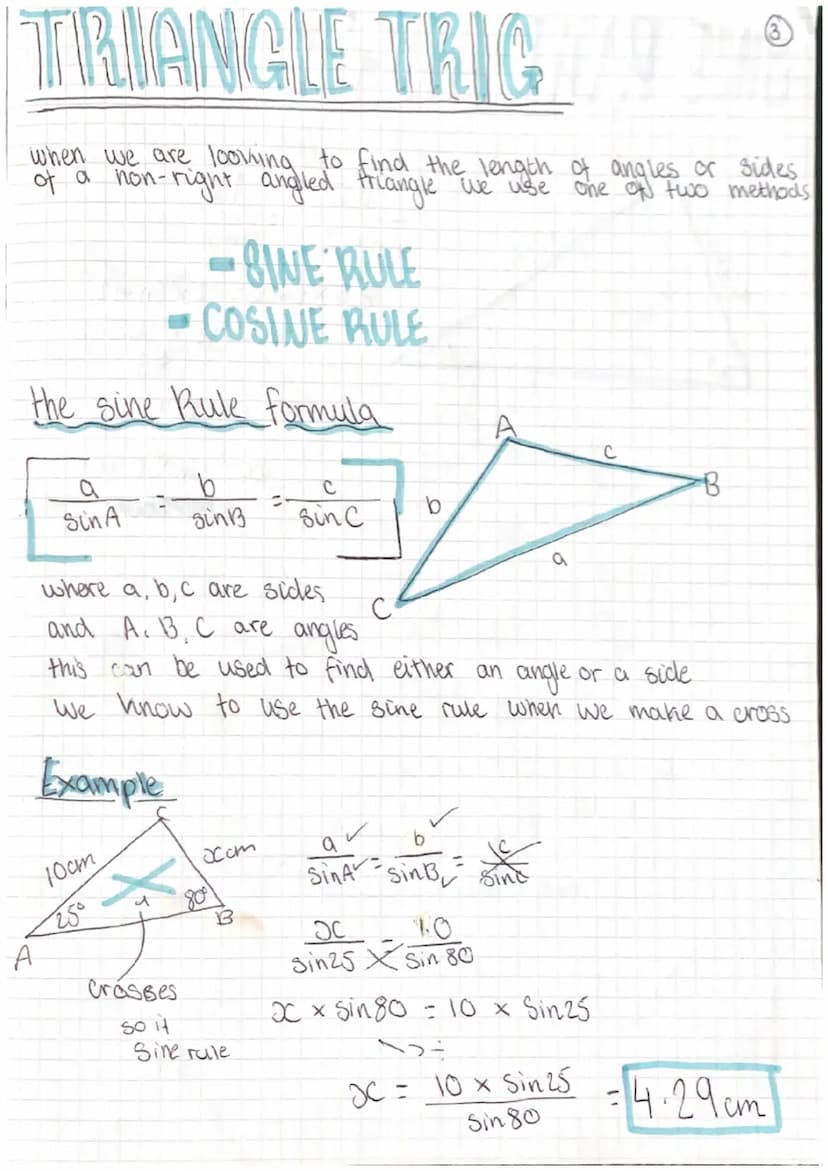 TRIANGLE TRIG
3
when we are looking to find the length of angles or sides
of a non-right angled triangle we use one of two methods
- SINE RULE
- COSINE RULE
the sine Rule formula
a/sinA = b/sinB = c/sinC
A
c
B
b
a
C
where a, b, c are sides
and A, B, C are angles
this can be used to find either an angle or a side
we know to use the sine rule when we make a cross
Example
C
10cm
xcm
25°
80°
A
B
crosses
so it
Sine rule
a/sinA = b/sinB = c/sinC
x/sin25 = 10/sin80
x × sin80 = 10 × sin25
÷
x = 10 × sin25/sin80 = 4.29cm